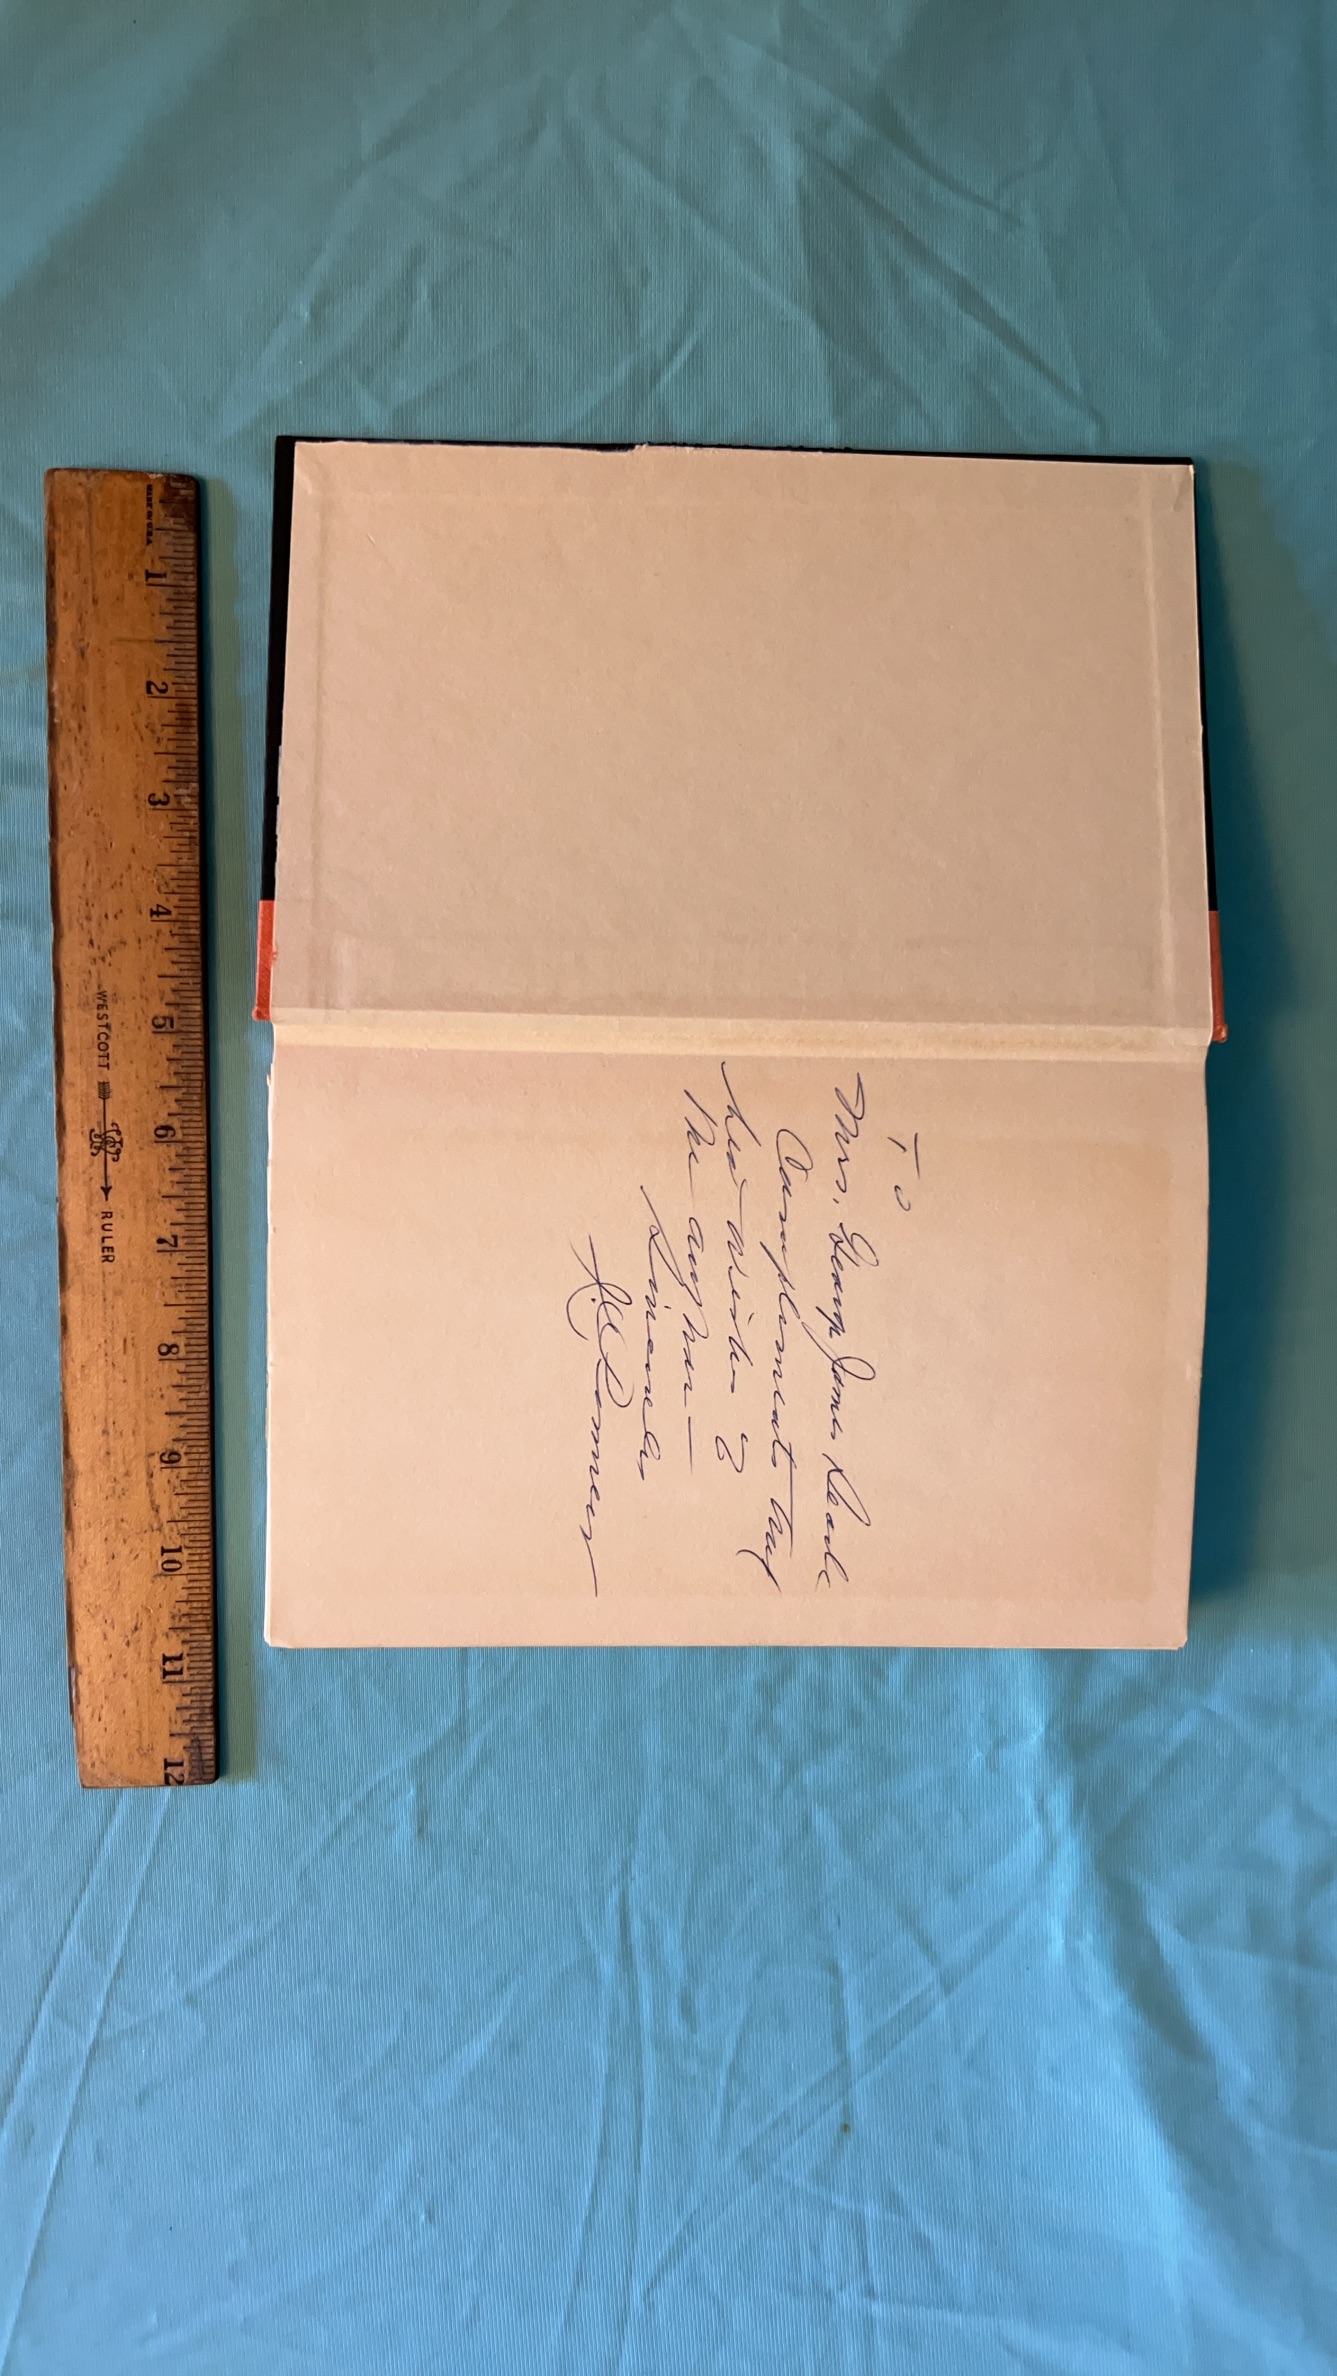 To
Mrs. George James Searle
Compliments and
best wishes of
the author—
Sincerely
MADE IN U.S.A.
1 2 3 4 5 6 7 8 9 10 11 12
WESTCOTT RULER